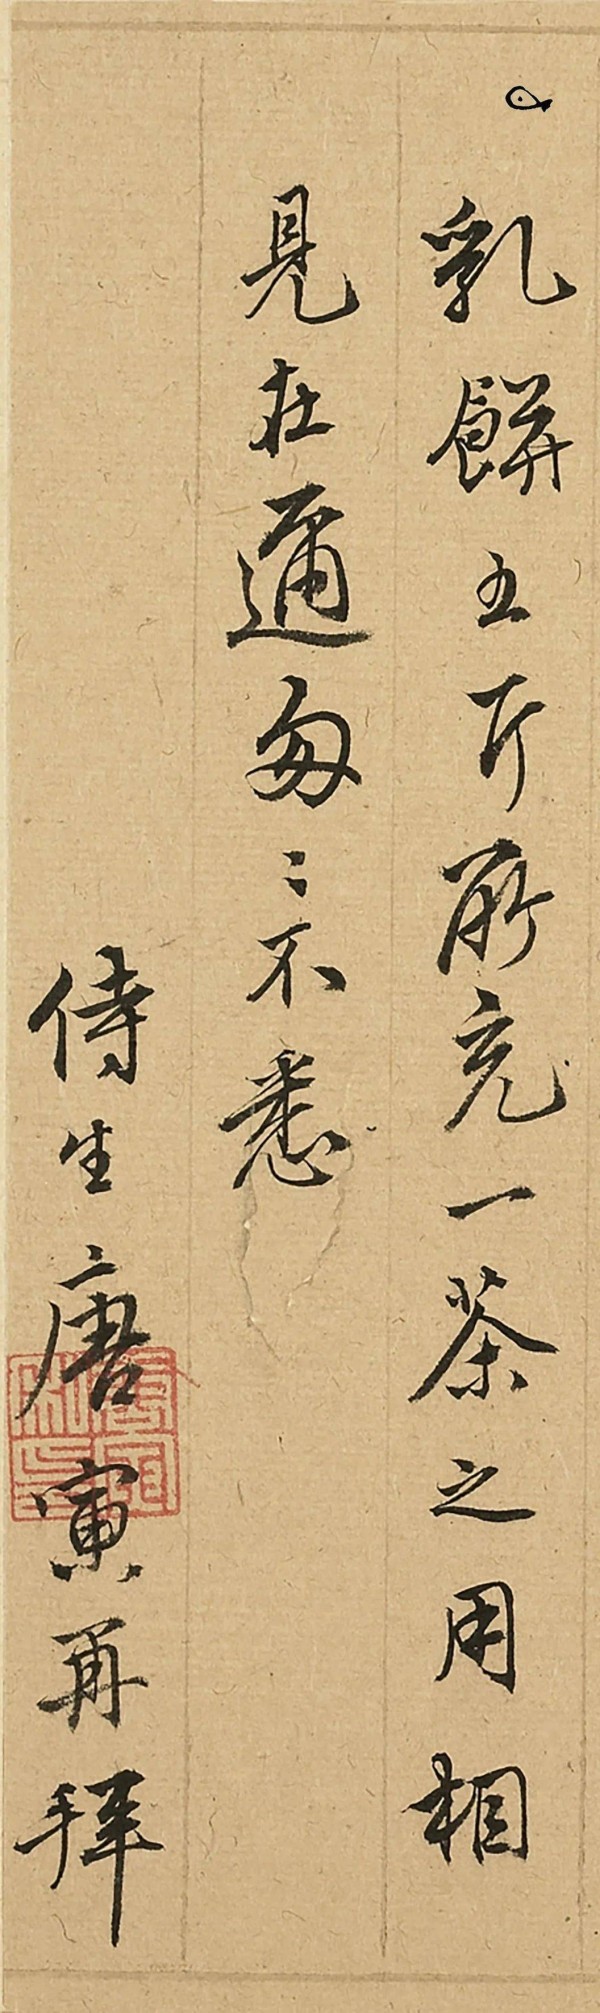 乳餅五斤所充一茶之用相
見在邇匆〻不悉
侍生唐寅再拜